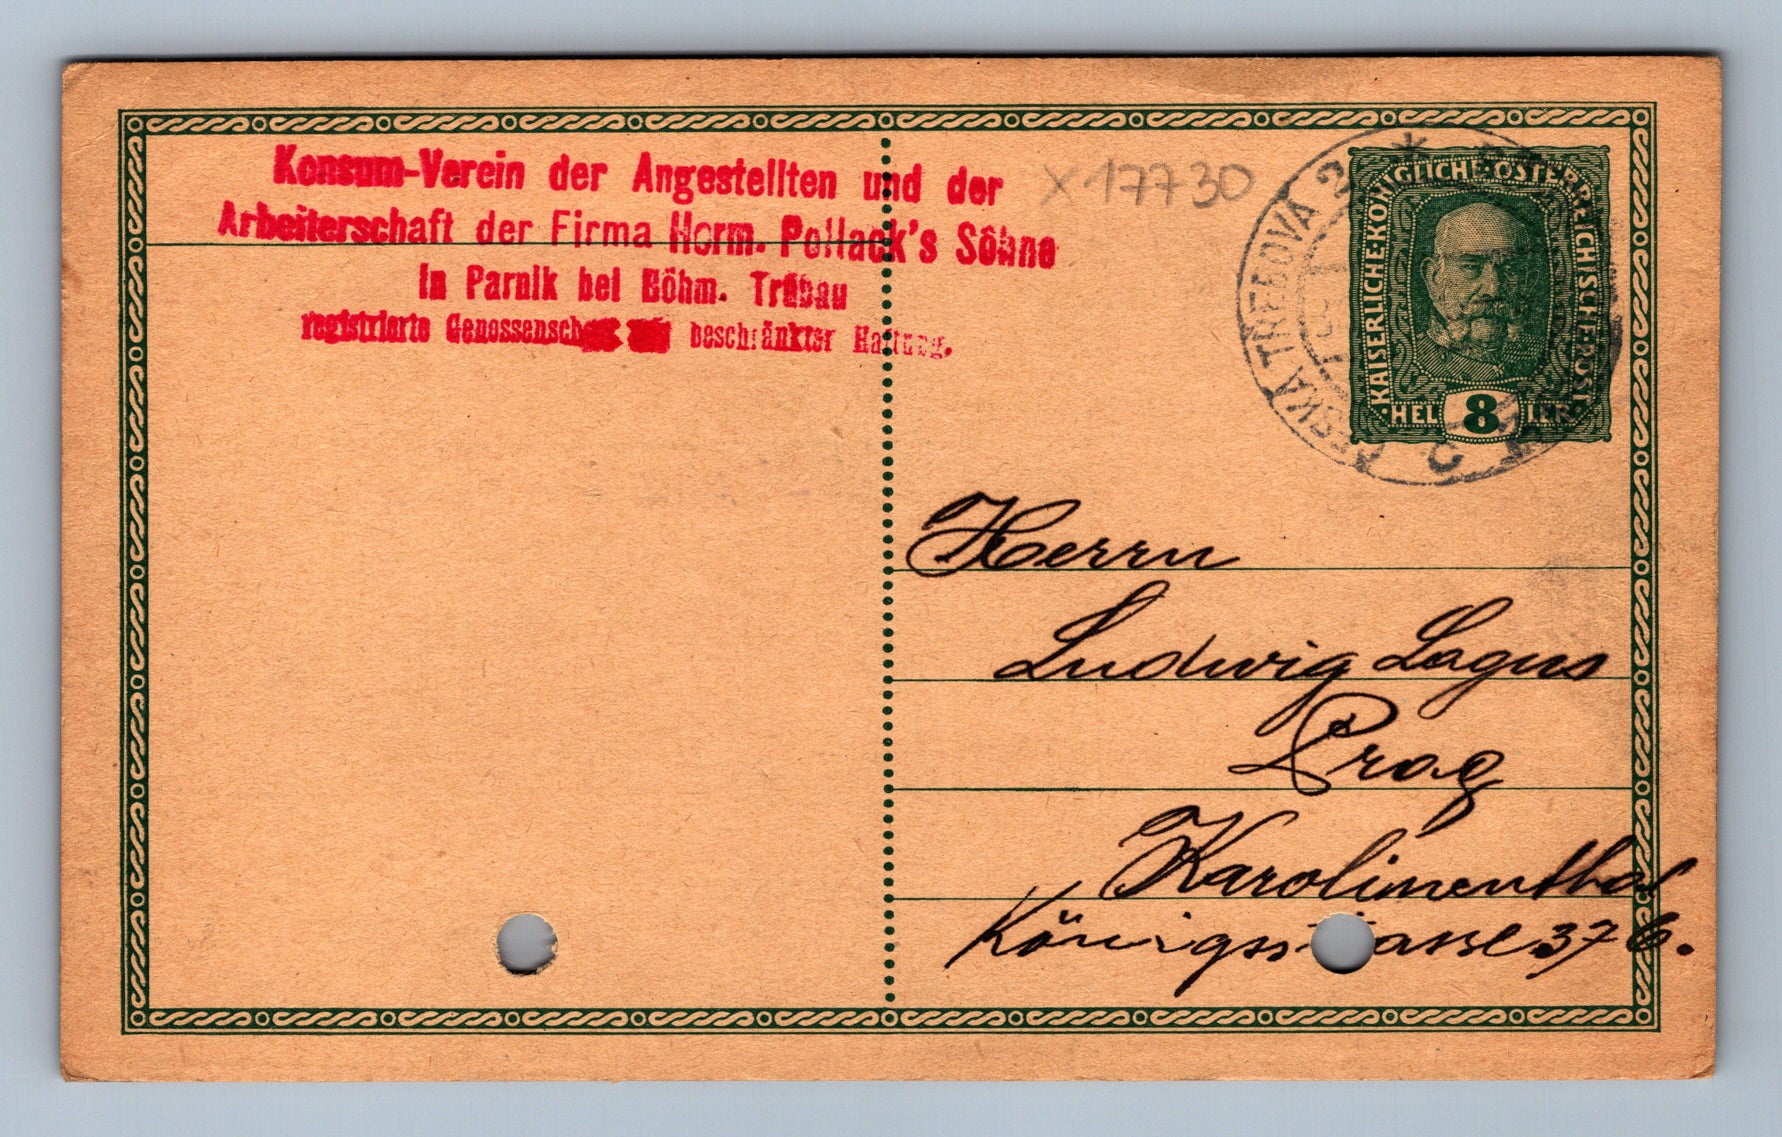 Konsum-Verein der Angestellten und der
Arbeiterschaft der Firma Herm. Pollack's Söhne
in Parnik bei Böhm. Trübau
registrierte Genossenschaft mit beschränkter Haftung.
X 17730
KAISERLICHE·KÖNIGLICHE·ÖSTERREICHISCHE·POST
HELLER
8
ČESKÁ TŘEBOVÁ 2
Herrn
Ludwig Lagus
Prag
Karolinenthal
Königsstrasse 37 6.